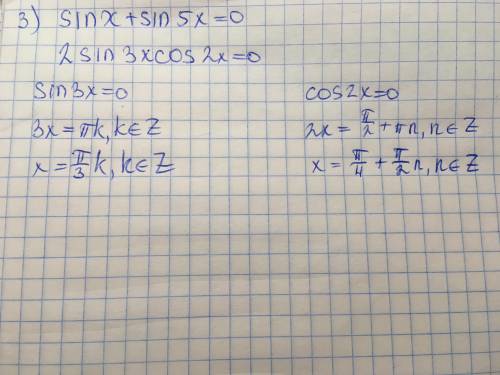 3) sinx + sin5x = 0
2sin3xcos2x = 0
sin3x = 0
3x = πk, k∈Z
x = π/3 k, k∈Z
cos2x = 0
2x = π/2 + πn, n∈Z
x = π/4 + π/2 n, n∈Z